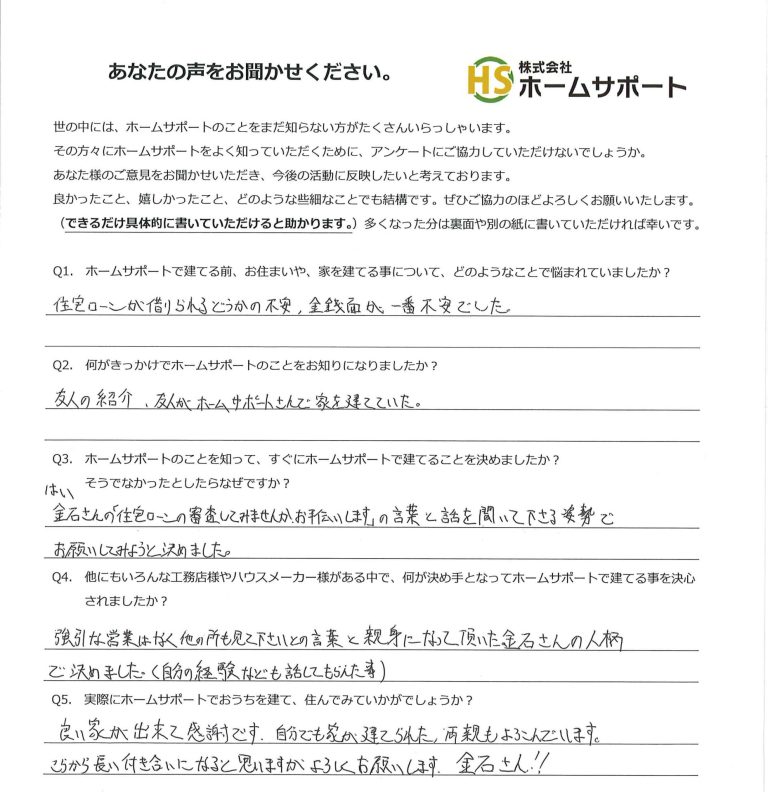 あなたの声をお聞かせください。
HS 株式会社
ホームサポート
世の中には、ホームサポートのことをまだ知らない方がたくさんいらっしゃいます。
その方々にホームサポートをよく知っていただくために、アンケートにご協力していただけないでしょうか。
あなた様のご意見をお聞かせいただき、今後の活動に反映したいと考えております。
良かったこと、嬉しかったこと、どのような些細なことでも結構です。ぜひご協力のほどよろしくお願いいたします。
（できるだけ具体的に書いていただけると助かります。）多くなった分は裏面や別の紙に書いていただければ幸いです。
Q1. ホームサポートで建てる前、お住まいや、家を建てる事について、どのようなことで悩まれていましたか？
住宅ローンが借りられるどうかの不安、金銭面が、一番不安でした。
Q2. 何がきっかけでホームサポートのことをお知りになりましたか？
友人の紹介、友人がホームサポートさんで家を建てていた。
Q3. ホームサポートのことを知って、すぐにホームサポートで建てることを決めましたか？
そうでなかったとしたらなぜですか？
はい
金石さんの「住宅ローンの審査してみませんか、お手伝いします」の言葉と話を聞いて下さる姿勢で
お願いしてみようと決めました。
Q4. 他にもいろんな工務店様やハウスメーカー様がある中で、何が決め手となってホームサポートで建てる事を決心
されましたか？
強引な営業はなく他の所も見て下さいとの言葉と親身になって頂いた金石さんの人柄
で決めました。（自分の経験なども話してもらえた事）
Q5. 実際にホームサポートでおうちを建て、住んでみていかがでしょうか？
良い家が出来て感謝です。自分でも家が建てられた、両親もよろこんでいます。
こらから長い付き合いになると思いますがよろしくお願いします。金石さん!!